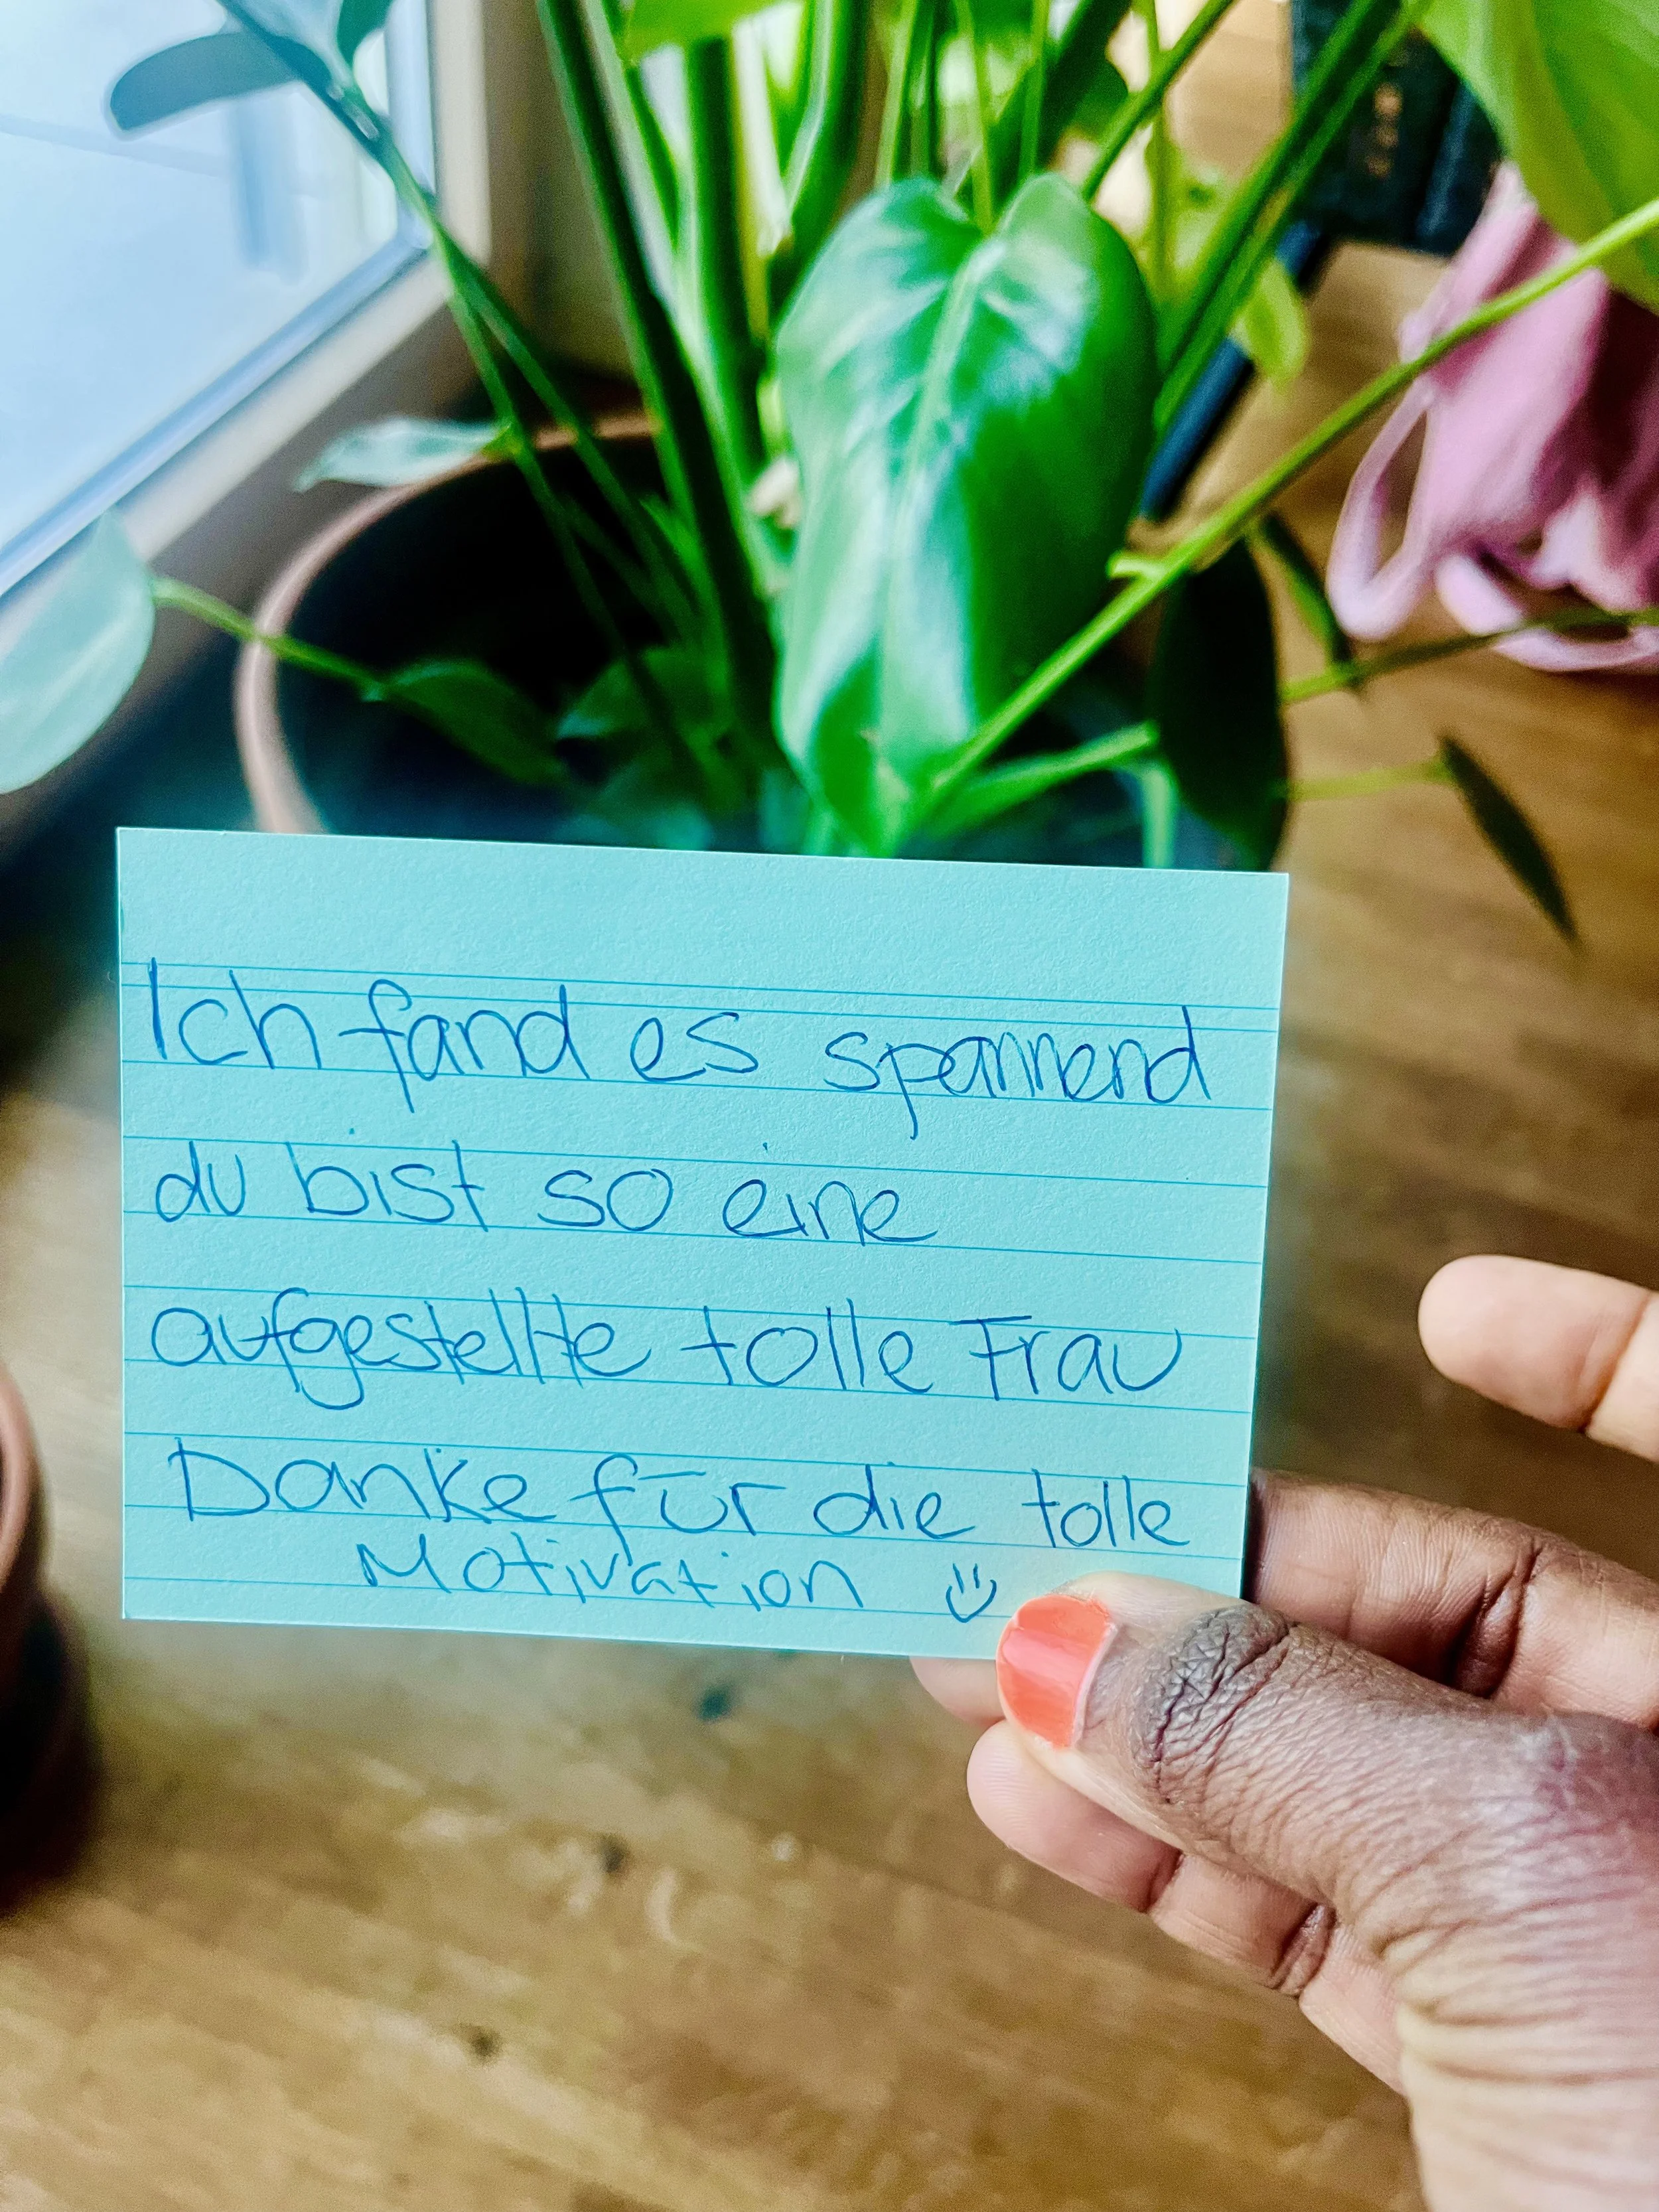 Ich fand es spannend
du bist so eine
aufgestellte tolle Frau
Danke für die tolle
Motivation